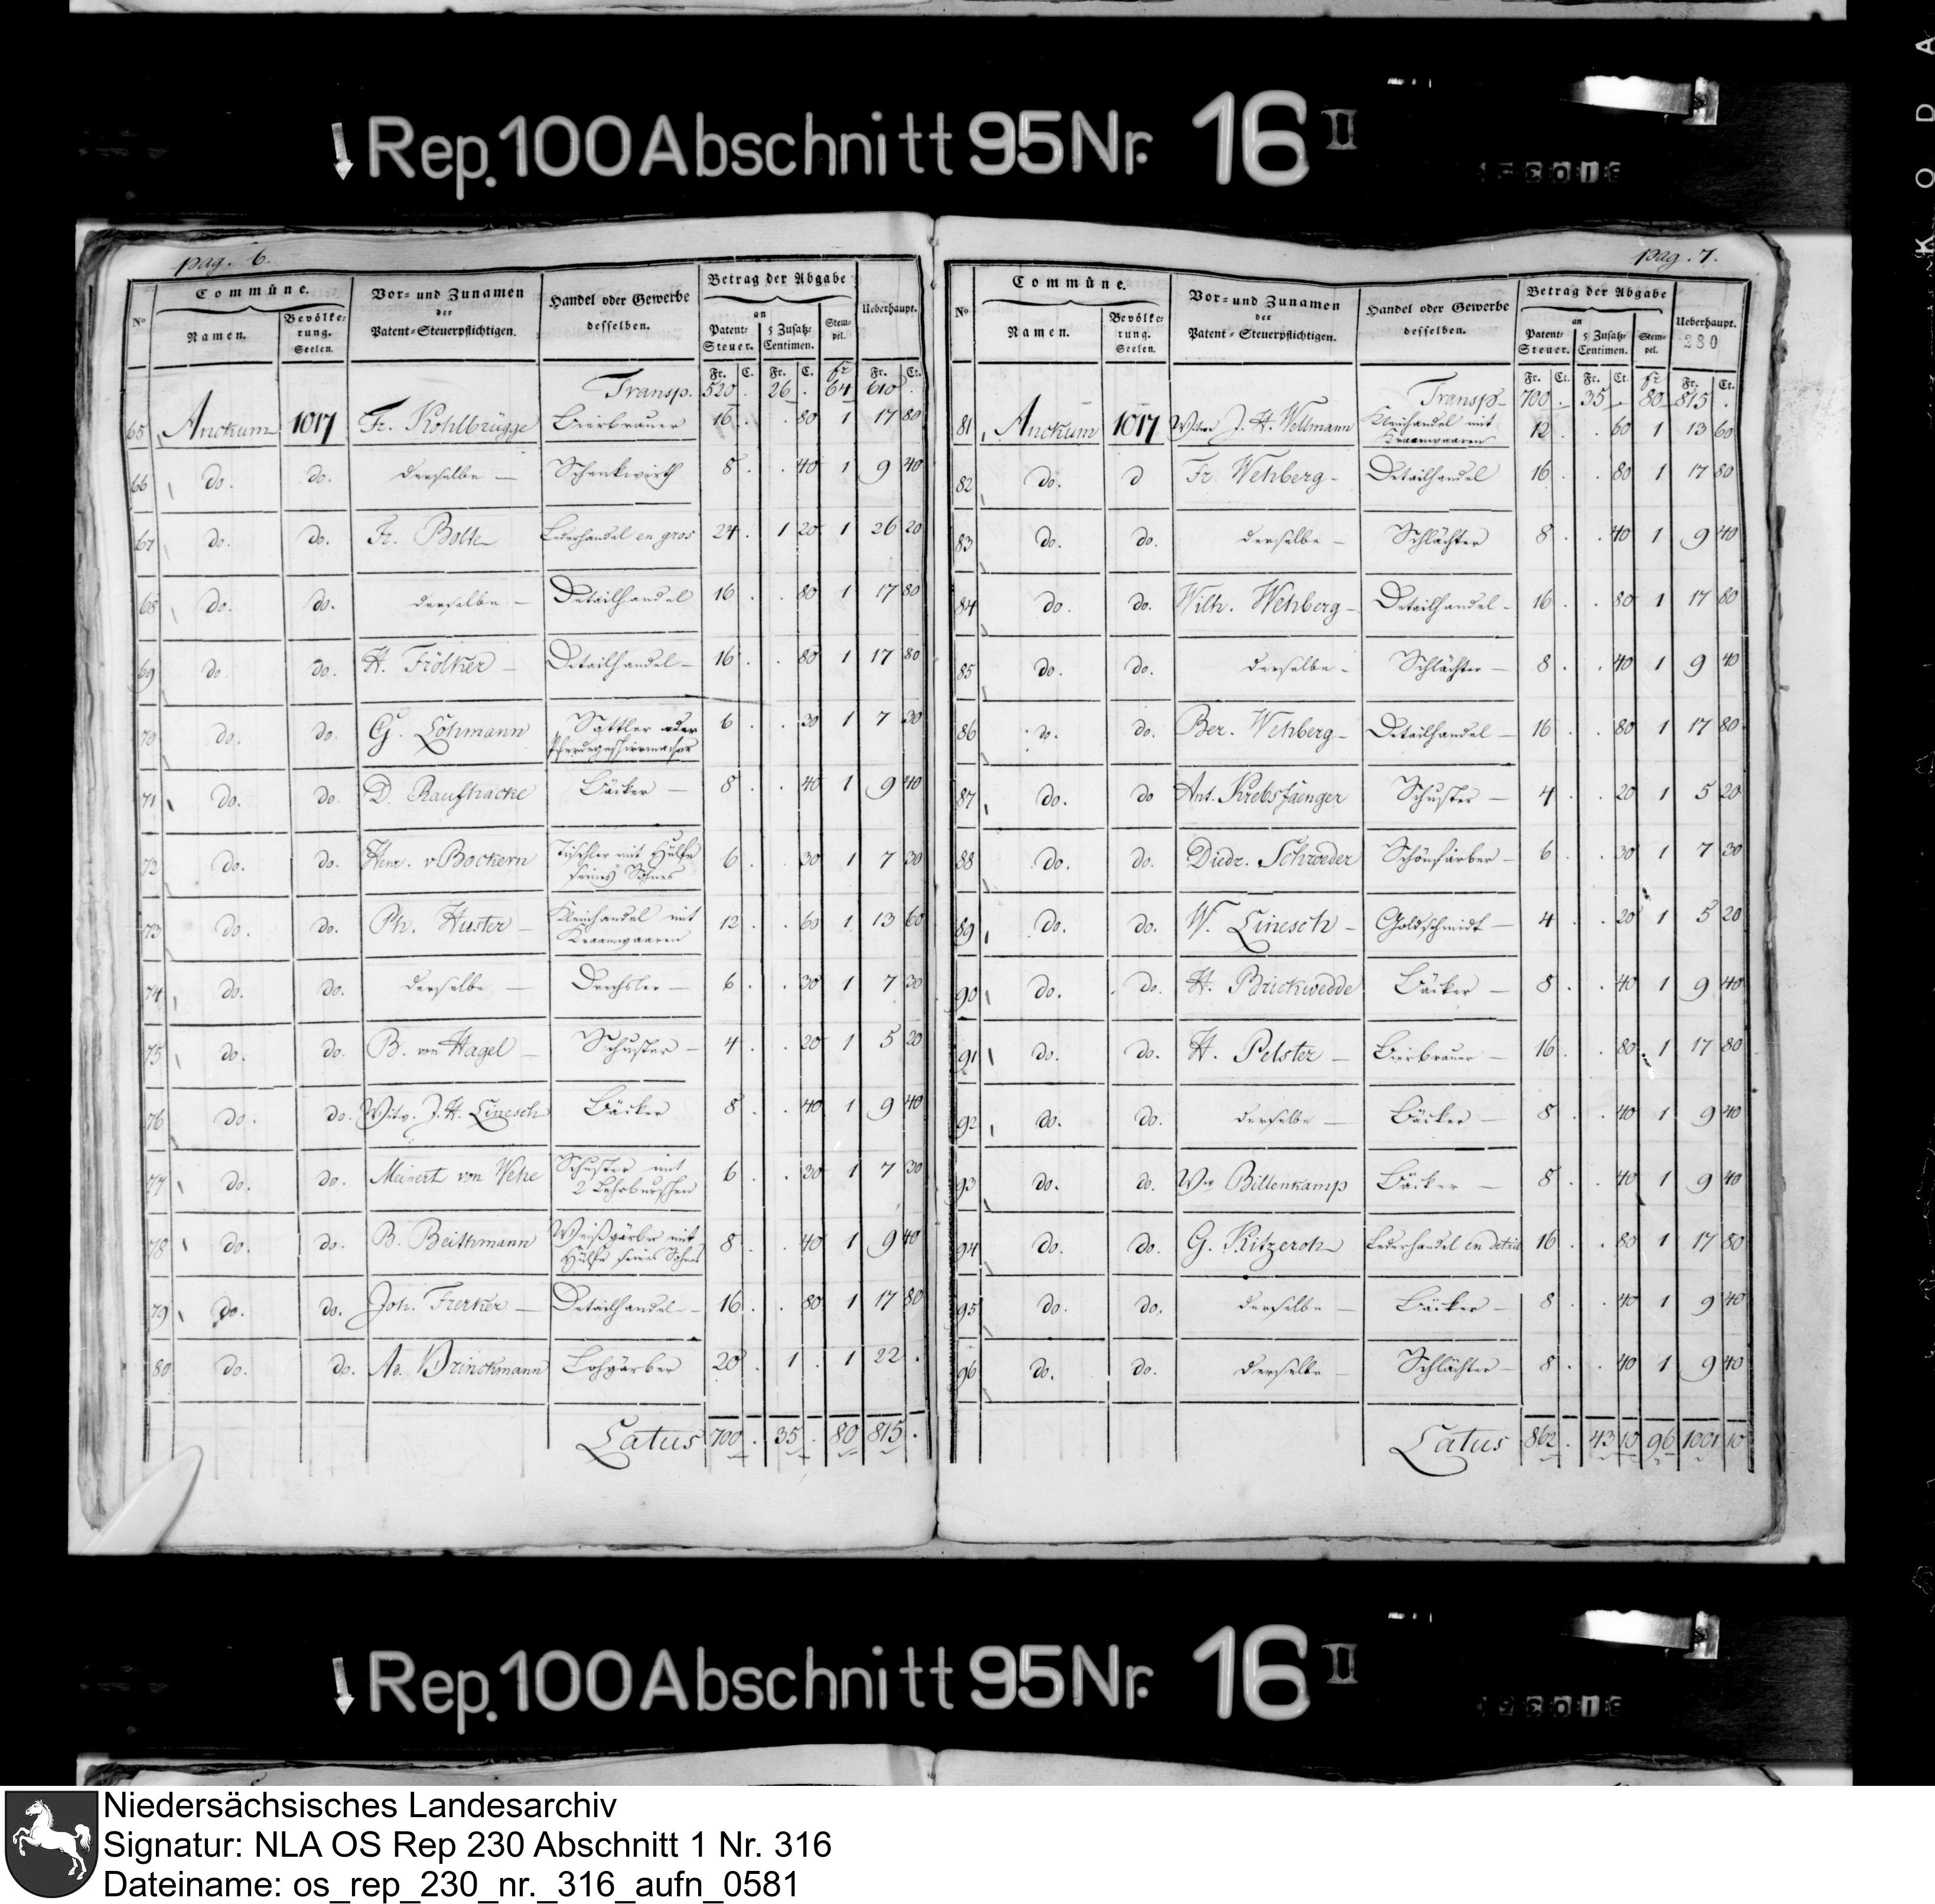 Rep. 100 Abschnitt 95 Nr. 16 II
pag. 6.
No Commüne. Vor= und Zunamen der Patent=Steuerpflichtigen. Handel oder Gewerbe desselben. Betrag der Abgabe an Ueberhaupt.
Namen. Bevölke= rung. Seelen. Patent= Steuer. 5 Zusatz= Centimen. Stem= pel.
Fr. C. Fr. C. fr Fr. Ct.
Transp. 520 . 26 . 64 610 .
65 Anckum 1017 Fr. Kohlbrügge Bierbrauer 16 . . 80 1 17 80
66 do. do. derselbe — Schenkwirth 8 . . 40 1 9 40
67 do. do. Fr. Bolte Lederhandel en gros 24 . 1 20 1 26 20
68 do. do. derselbe — Detailhandel 16 . . 80 1 17 80
69 do do. H. Frölker — Detailhandel — 16 . . 80 1 17 80
70 do. do. G. Lohmann Sattler oder Pferdegeschirrmacher 6 . . 30 1 7 30
71 do. do. D. Raufhacke Bäcker — 8 . . 40 1 9 40
72 do. do. Henr. v Bockern Tischler mit Hülfe seines Sohnes 6 . . 30 1 7 30
73 do. do. Ph. Huster — Kleinhandel mit Kraamwaaren 12 . . 60 1 13 60
74 do. do. derselbe — Drechsler — 6 . . 30 1 7 30
75 do. do. B. von Hagel — Schuster — 4 . . 20 1 5 20
76 do. do. Witw. J. H. Linesch Bäcker 8 . . 40 1 9 40
77 do. do. Meinert von Wehe Schuster mit 2 Lehrburschen 6 . . 30 1 7 30
78 do. do. B. Beithmann Weißgärber mit Hülfe seines Sohnes 8 . . 40 1 9 40
79 do. do. Joh. Frerker — Detailhandel — 16 . . 80 1 17 80
80 do. do. Ad. Brinckmann Lohgärber 20 . 1 . 1 22 .
Latus 700 . 35 . 80 815 .
pag. 7.
No Commüne. Vor= und Zunamen der Patent=Steuerpflichtigen. Handel oder Gewerbe desselben. Betrag der Abgabe an Ueberhaupt.
Namen. Bevölke= rung. Seelen. Patent= Steuer. 5 Zusatz= Centimen. Stem= pel. 280
Fr. Ct. Fr. Ct. fr Fr. Ct.
Transp. 700 . 35 . 80 815 .
81 Anckum 1017 Wwe J. H. Wellmann Kleinhandel mit Kraamwaaren 12 . . 60 1 13 60
82 do. d Fr. Wehberg — Detailhandel 16 . . 80 1 17 80
83 do. do. derselbe — Schlächter 8 . . 40 1 9 40
84 do. do. Wilh. Wehberg — Detailhandel — 16 . . 80 1 17 80
85 do. do. derselbe — Schlächter — 8 . . 40 1 9 40
86 do. do. Ber. Wehberg — Detailhandel — 16 . . 80 1 17 80
87 do. do Ant. Krebsfaenger Schuster — 4 . . 20 1 5 20
88 do. do. Diedr. Schroeder Schönfärber — 6 . . 30 1 7 30
89 do. do. W. Linesch — Goldschmidt — 4 . . 20 1 5 20
90 do. do. H. Brickwedde Bäcker — 8 . . 40 1 9 40
91 do. do. H. Pelster — Bierbrauer — 16 . . 80 1 17 80
92 do. do. derselbe — Bäcker — 8 . . 40 1 9 40
93 do. do. Ww Billenkamp Bäcker — 8 . . 40 1 9 40
94 do. do. G. Kitzeroh Lederhandel en detail 16 . . 80 1 17 80
95 do. do. derselbe — Bäcker — 8 . . 40 1 9 40
96 do. do. derselbe — Schlächter — 8 . . 40 1 9 40
Latus 862 . 43 10 96 1001 10
Rep. 100 Abschnitt 95 Nr. 16 II
Niedersächsisches Landesarchiv
Signatur: NLA OS Rep 230 Abschnitt 1 Nr. 316
Dateiname: os_rep_230_nr._316_aufn_0581